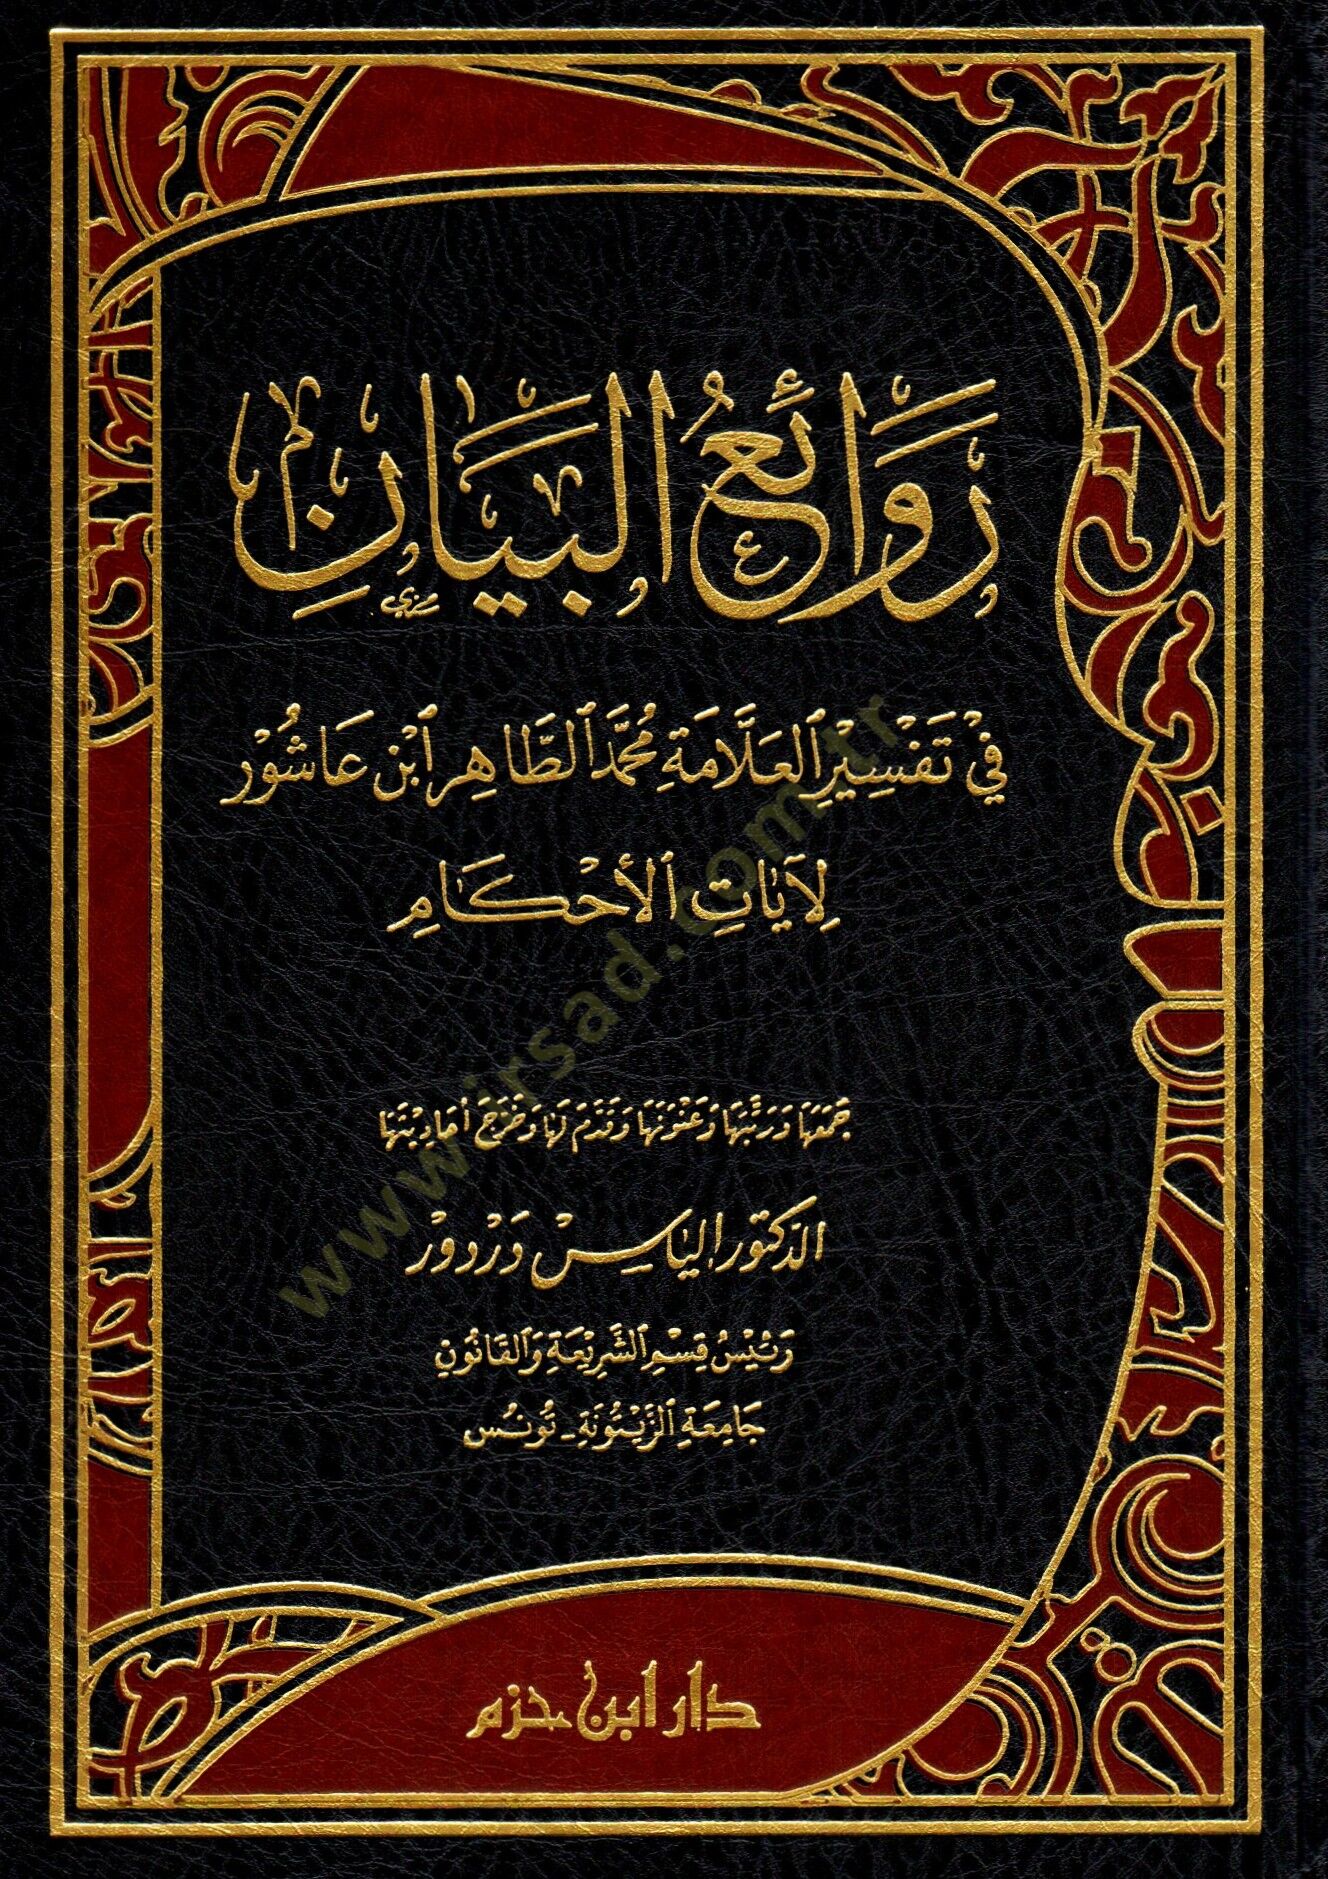 رَوَائِعُ البَيَانِ
فِي تَفْسِيْرِ العَلَّامَةِ مُحَمَّد الطَّاهِر ابْن عَاشُوْر
لِآيَاتِ الأَحْكَامِ
جَمَعَهَا وَرَتَّبَهَا وَعَنْوَنَهَا وَقَدَّمَ لَهَا وَخَرَّجَ أَحَادِيْثَهَا
الدكتور إلياس دَرْدُورْ
رَئِيْسُ قِسْمِ الشَّرِيْعَةِ وَالقَانُونِ
جَامِعَةِ الزَّيْتُونَةِ - تُونُس
دار ابن حزم
www.irsad.com.tr